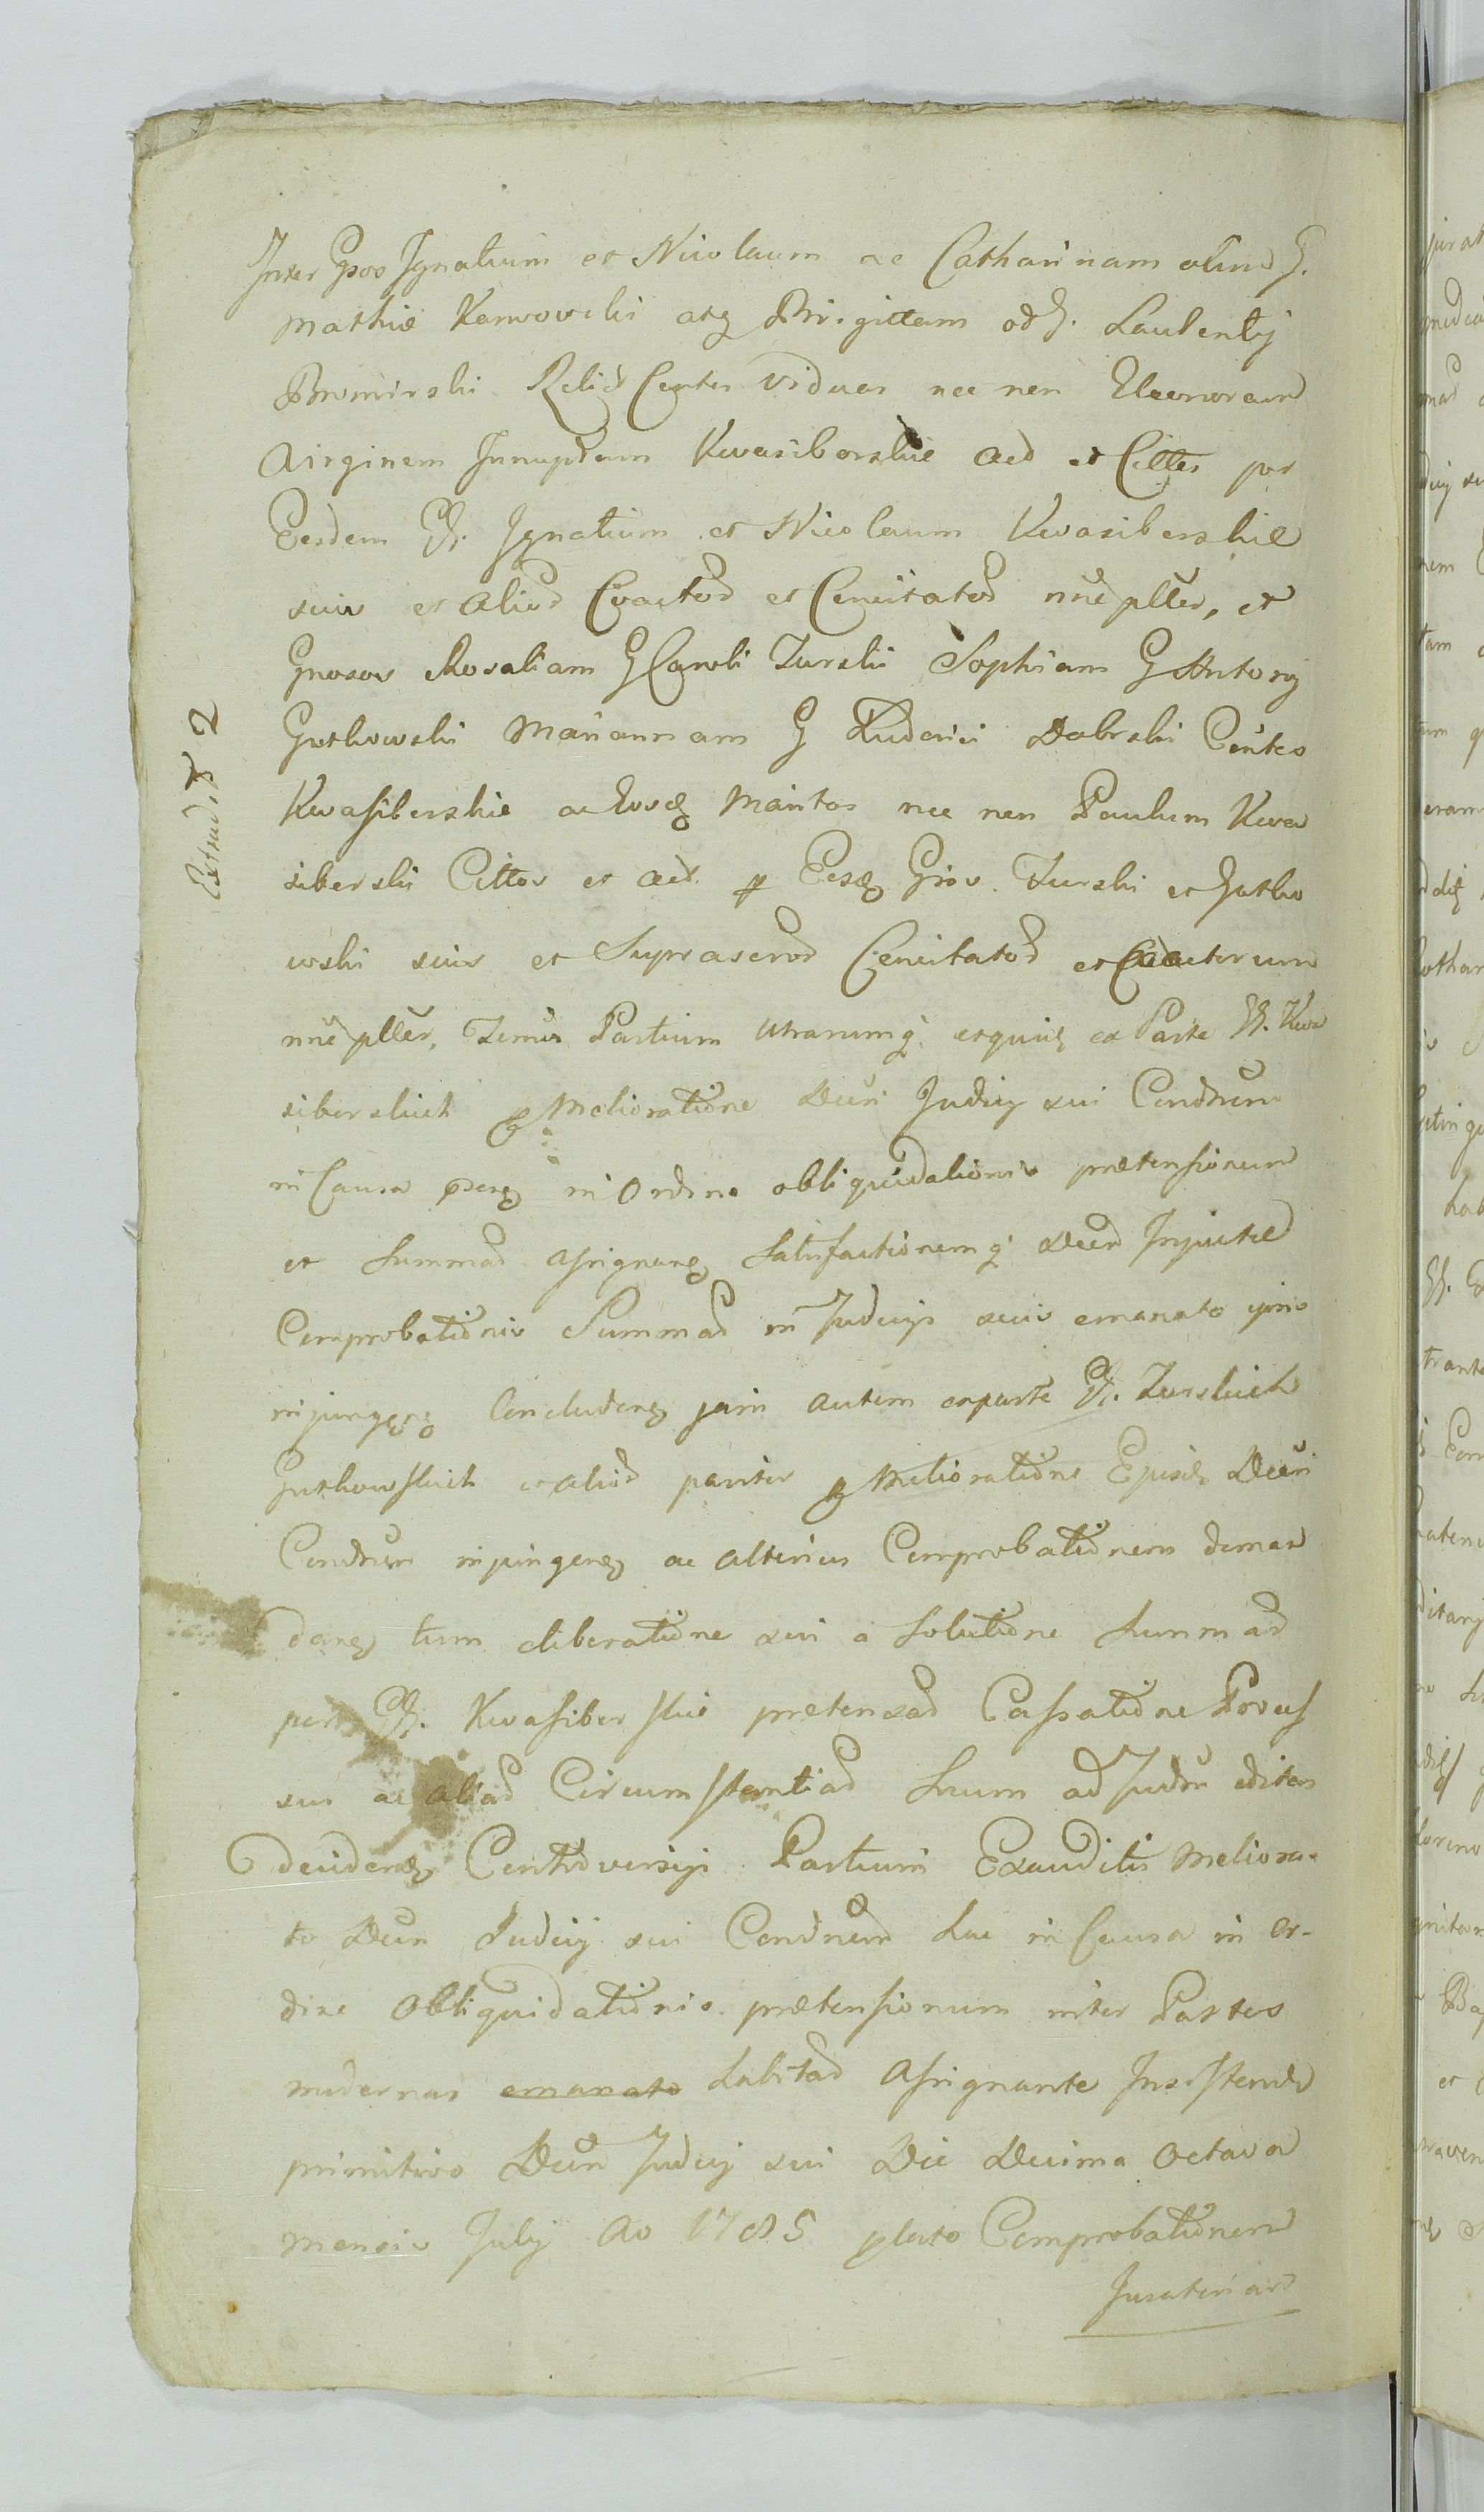 Inter Gsos Ignatium et Nicolaum ac Catharinam olim G.
Mathiæ Karwowski atq Brigittam od G. Laurentÿ
Bromirski Relict Contes viduas nec non Eleonoram
Virginem Innuptam Kwasiborskie Act et Cittes per
Eosdem GG. Ignatium et Nicolaum Kwasiborskie
suis et aliod Coactod et Concitatod nne plles, et
Gnosas Rosaliam G Caroli Turski Sophiam G Antonÿ
Gutkowski Mariannam G Ludovici Dobrski Contes
Kwasiborskie ac Eovq Maritos nec non Paulum Kwa
siborski Cittos et Act. p Eosq Gsos. Turski et Gutko
wski suis et Suprascrod Concitatod et Coactorum
nne plles, Termis Partium utrarumq; ex Parte GG. Kwa
siborskich p Melioratione Decri Judicÿ sui Condrum
in Causa in Ordine obliquidationis prætensionum
et Summad assignareq Satisfactionemq; Decod Injuctæ
Comprobationis Summad in Judicÿs suis emanato
injungeq Concludereq jam autem exparte GG. Turskich
Gutkowskich et aliod pariter p Melioratione Ejusd Decri
Condrum injungereq ac alterius Comprobationem deman
dareq tum eliberatione sui a Solutione Summad
per GG. Kwasiborskie prætensad Cassatione Proces
sus ac aliad Circumstantiad Suum ad Judm editas
decidereq Controversÿs Partium Exauditis Meliora-
to Decrn Judicÿ sui Condnend hac in Causa in or-
dine Obliquidationis prætensionum inter Partes
modernas emanato habitad Assignante Insistendo
primitivo Decrn Judicÿ sui Die Decima Octava
Mensis Julÿ Ao 1785 plato Comprobationem
Juratoriam
Extrad. 2